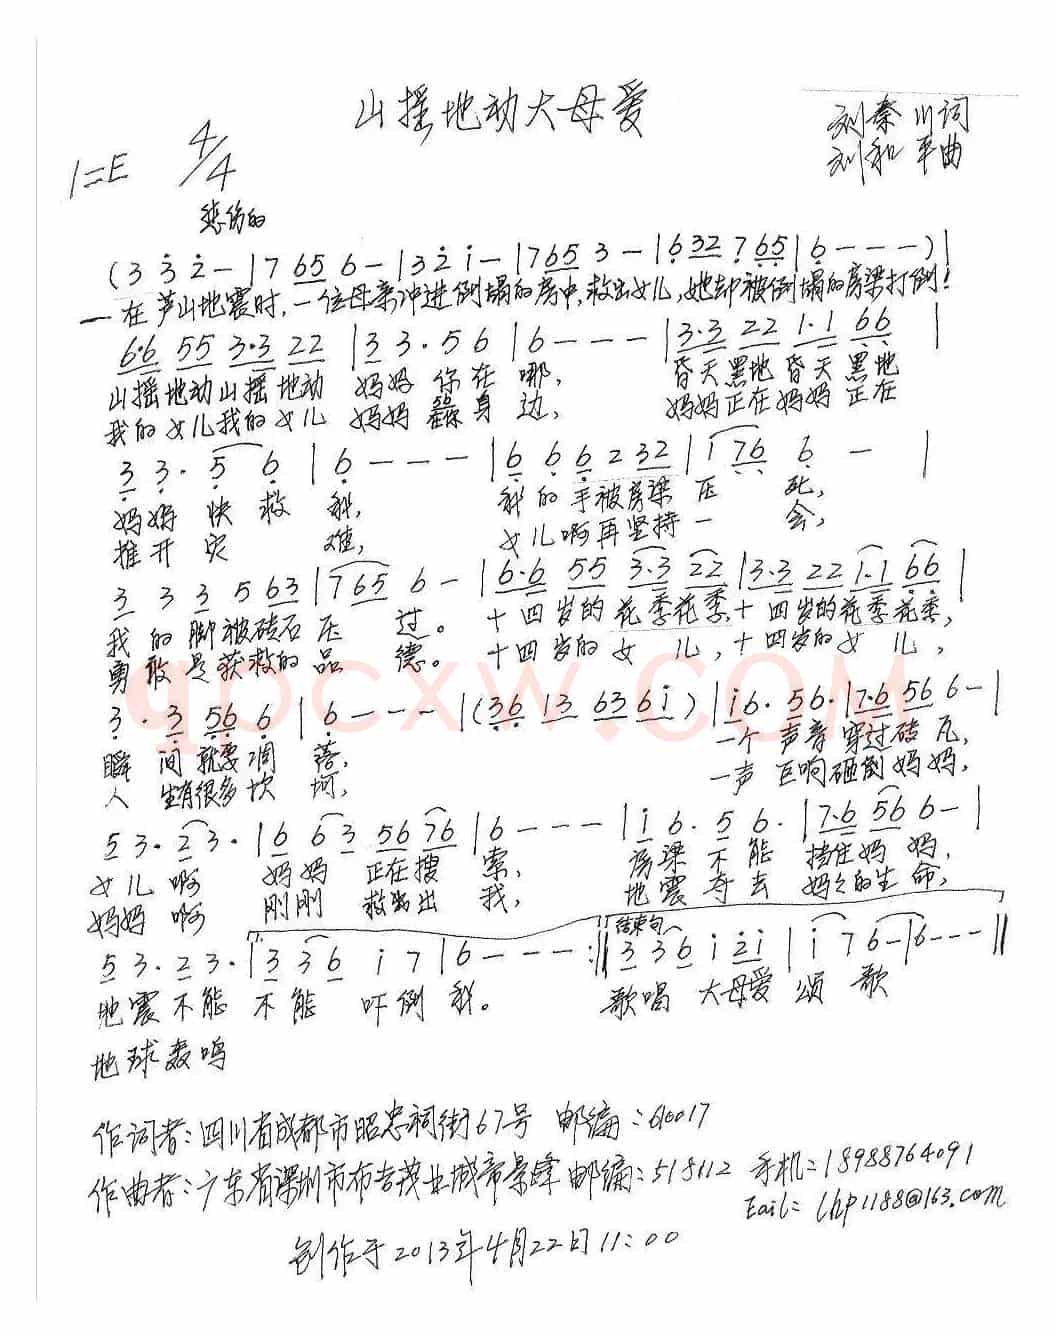 山摇地动大母爱
刘秦川词
刘和平曲
1=E 4/4
悲伤的
(3 3 2 - | 7 65 6 - | 3 2 i - | 765 3 - | 6 32 7 65 | 6 - - - ) |
—在芦山地震时,一位母亲冲进倒塌的房中,救出女儿,她却被倒塌的房梁打倒!
6·6 55 3·3 22 | 3 3· 5 6 | 6 - - - | 3·3 22 1·1 66 |
山摇地动山摇地动 妈妈你在哪, 昏天黑地昏天黑地
我的女儿我的女儿 妈妈身边, 妈妈正在妈妈正在
3 3· 5 6 | 6 - - - | 6 6 6 2 32 | i 76 6 - |
妈妈快救我, 我的手被房梁压死,
推开灾难, 女儿啊再坚持一会,
3 3 3 5 63 | 765 6 - | 6·6 55 3·3 22 | 3·3 22 1·1 66 |
我的脚被砖石压过。 十四岁的花季花季,十四岁的花季花季,
勇敢是获救的品德。 十四岁的女儿,十四岁的女儿,
3· 3 56 6 | 6 - - - | (36 13 63 6i) | i6· 56· | 7·6 56 6 - |
瞬间就要凋落, 一个声音穿过砖瓦,
人生有很多坎坷, 一声巨响砸倒妈妈,
5 3· 2 3· | 6 6 3 56 76 | 6 - - - | i 6· 5 6· | 7·6 56 6 - |
女儿啊 妈妈正在搜索, 房梁不能挡住妈妈,
妈妈啊 刚刚救出我, 地震夺去妈々的生命,
5 3· 2 3· | 3 36 i 7 | 6 - - - :‖ 结束句 3 3 6 i 2i | i 7 6 - | 6 - - - ‖
地震不能不能吓倒我。 歌唱大母爱颂歌
地球轰鸣
作词者:四川省成都市昭忠祠街67号 邮编:610017
作曲者:广东省深圳市布吉茂业城帝景峰 邮编:518112 手机:18988764091
Eail: lhp1188@163.com
创作于2013年4月22日11:00
qpcxw.com